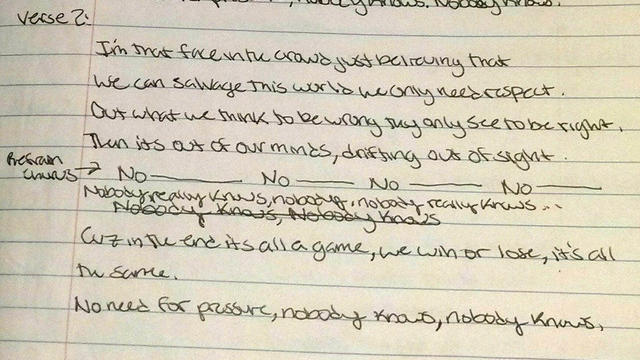 nobody knows. Nobody knows.
Verse 2:
I'm that face in the crowd just believing that
we can salvage this world we only need respect.
But what we think to be wrong they only see to be right.
Then its out of our minds, drifting out of sight.
Prechorus chorus → No —— No —— No —— No ——
Nobody really knows, nobody, nobody really knows...
Nobody knows, Nobody knows
Cuz in the end its all a game, we win or lose, it's all
the same.
No need for pressure, nobody knows, nobody knows,